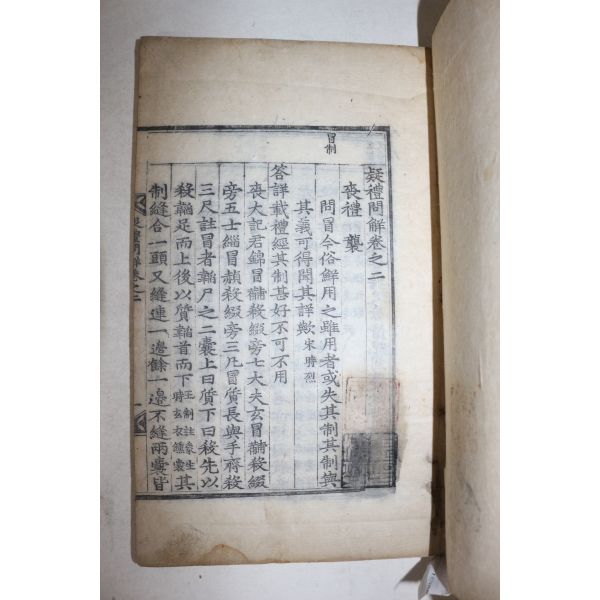 冒制
疑禮問解卷之二
喪禮 襲
問冒今俗鮮用之雖用者或失其制其制與
其義可得聞其詳歟 宋時烈
答詳載禮經其制甚好不可不用
喪大記君錦冒黼殺綴旁七大夫玄冒黼殺綴
旁五士緇冒赬殺綴旁三凡冒質長與手齊殺
三尺註冒者韜尸之二囊上曰質下曰殺先以
殺韜足而上後以質韜首而下 王制註象生時玄衣纁裳 其
制縫合一頭又縫連一邊餘一邊不縫兩囊皆
疑禮問解卷之二
一